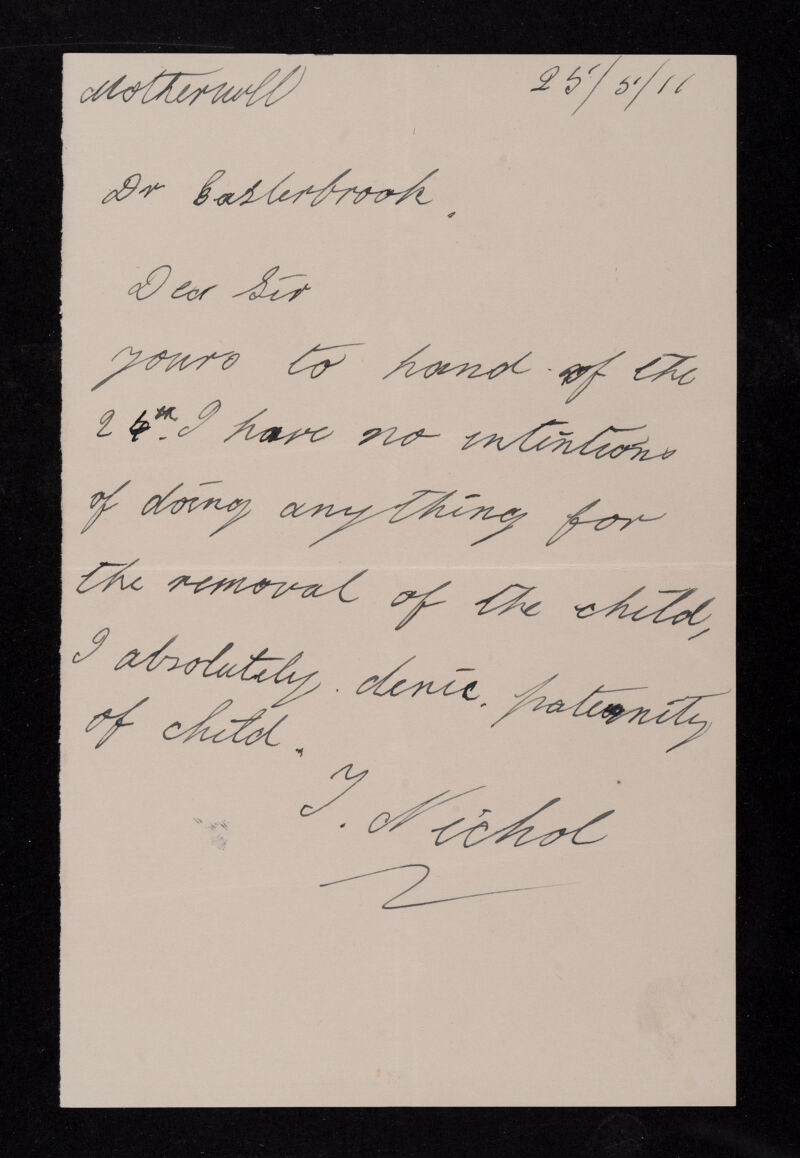 Motherwell 25/5/11
Dr Easterbrook.
Dea Sir
yours to hand of the
24th. I have no intentions
of doing anything for
the removal of the child,
I absolutely denie. paternity
of child.
T. Nichol